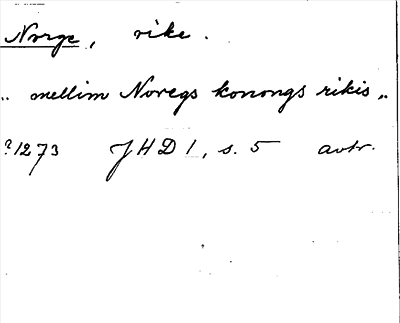 Norge, rike.
„ mellim Noregs konongs rikis „
?1273 JHD 1, s. 5 avtr.